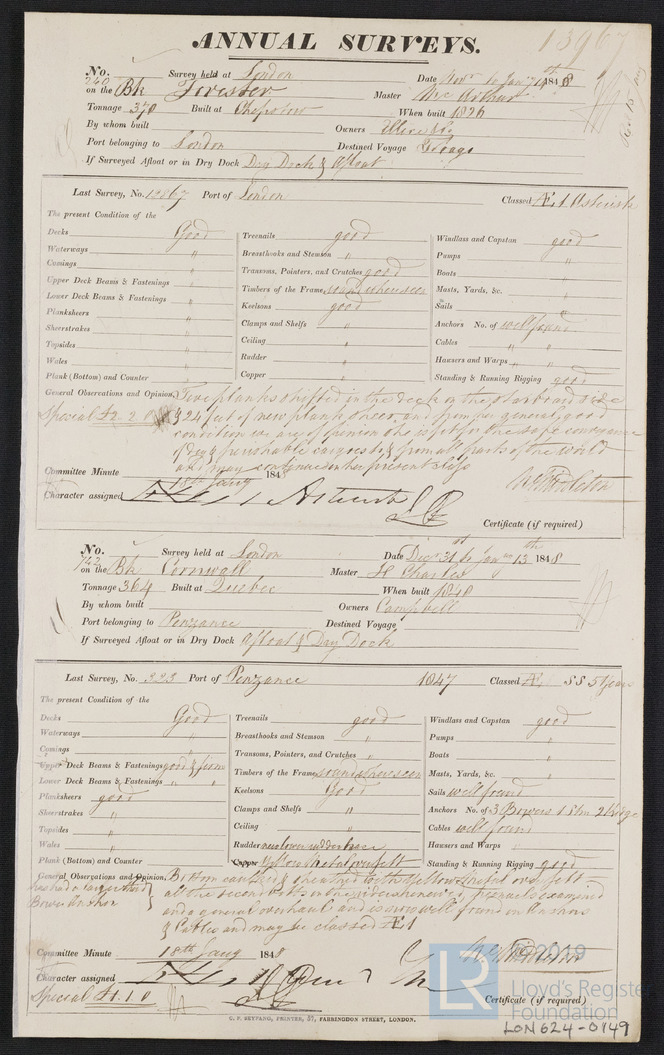 ANNUAL SURVEYS.
13967
No. 240 Survey held at London Date Novr to Jany 1848
on the Bk Forester Master McArthur
Tonnage 370 Built at Chepstow When built 1826
By whom built Owners
Port belonging to London Destined Voyage
If Surveyed Afloat or in Dry Dock Dry Dock & Afloat
Last Survey, No. 12867 Port of London Classed Æ 1 Asterisk
The present Condition of the
Decks Good Treenails good Windlass and Capstan good
Waterways " Breasthooks and Stemson " Pumps "
Comings " Transoms, Pointers, and Crutches good Boats "
Upper Deck Beams & Fastenings " Timbers of the Frame sound where seen Masts, Yards, &c. "
Lower Deck Beams & Fastenings " Keelsons good Sails "
Planksheers " Clamps and Shelfs " Anchors No. of well found
Sheerstrakes " Ceiling " Cables " "
Topsides " Rudder " Hawsers and Warps "
Wales " Copper " Standing & Running Rigging good
Plank (Bottom) and Counter "
General Observations and Opinion, Five planks shifted in the deck on the starboard side
Special £2. 2. 0 & 24 feet of new plank sheer, and from her general good
condition we are of opinion she is fit for the safe conveyance
of dry & perishable cargoes to & from all parts of the world
and may continue in her present class
Committee Minute 18th Jany 1848
Character assigned Asterisk
Certificate (if required)
No. 142 Survey held at London Date Decr 31st to Jany 13th 1848
on the Bk Cornwall Master H Charles
Tonnage 364 Built at Quebec When built 1840
By whom built Owners Campbell
Port belonging to Penzance Destined Voyage
If Surveyed Afloat or in Dry Dock Afloat & Dry Dock
Last Survey, No. 223 Port of Penzance 1847 Classed Æ 1 SS 5 Years
The present Condition of the
Decks Good Treenails good Windlass and Capstan good
Waterways " Breasthooks and Stemson " Pumps "
Comings " Transoms, Pointers, and Crutches " Boats "
Upper Deck Beams & Fastenings good & firm Timbers of the Frame sound where seen Masts, Yards, &c. "
Lower Deck Beams & Fastenings " " Keelsons Good Sails well found
Planksheers good Clamps and Shelfs " Anchors No. of 3 Bowers 1 Stm 2 Kedge
Sheerstrakes " Ceiling " Cables well found
Topsides " Rudder Hawsers and Warps "
Wales " Copper Yellow Metal over felt Standing & Running Rigging good
Plank (Bottom) and Counter "
General Observations and Opinion, Bottom caulked & sheathed with Yellow Metal over felt
has had a larger third all the second bolts in the renewed, treenails examined
Bower Anchor and a general overhaul and is now well found in Anchors
& Cables and may be classed Æ 1
Committee Minute 18th Jany 1848
Character assigned
Special £1. 1. 0 Certificate (if required)
C. F. SEYFANG, PRINTER, 57, FARRINGDON STREET, LONDON.
LR
© 2019
Lloyd's Register
Foundation
LON624-0149